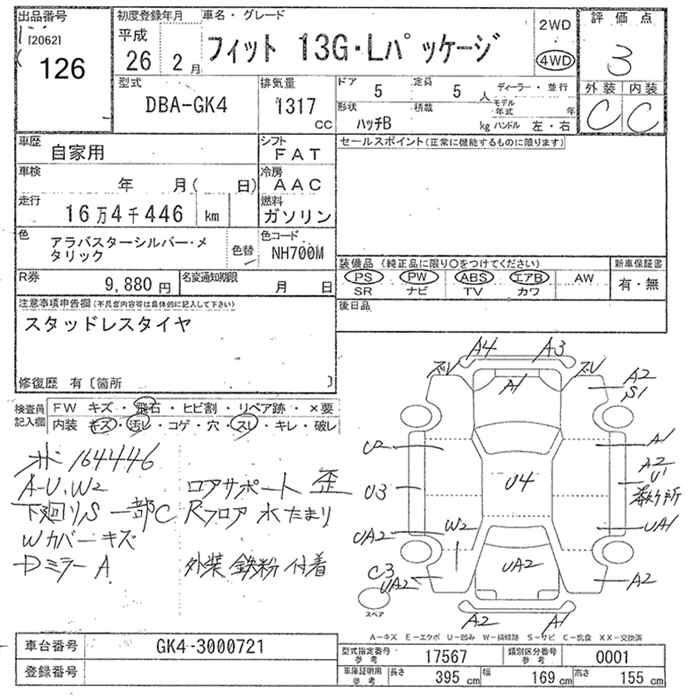 出品番号
[2062]
126
初度登録年月
平成
26 2月
車名・グレード
フィット 13G・Lパッケージ
2WD
4WD
評価点
3
外装 内装
C C
型式
DBA-GK4
排気量
1317 CC
ドア 5
定員 5 人
ディーラー・並行
形状
ハッチB
積載 kg
モデル年式 年
ハンドル 左・右
車歴
自家用
シフト
FAT
セールスポイント(正常に機能するものに限ります)
車検
年 月( 日)
冷房
AAC
走行
16万4千446 km
燃料
ガソリン
色
アラバスターシルバー・メタリック
色替
色コード
NH700M
装備品(純正品に限り○をつけてください)
PS PW ABS エアB AW
SR ナビ TV カワ
新車保証書
有・無
R券
9,880 円
名変通知期限
月 日
後日品
注意事項申告欄(不具合内容等は具体的に記入して下さい)
スタッドレスタイヤ
修復歴 有〔箇所 〕
検査員記入欄
FW キズ・飛石・ヒビ割・リペア跡・×要
内装 キズ・汚レ・コゲ・穴・スレ・キレ・破レ
164446
A-U、W2
ロアサポート 歪
下廻りS 一部C
Rフロア 水たまり
Wカバーキズ
Dミラー A
外装 鉄粉 付着
A4 A3
ズリ ズリ
A1
A2
S1
U2
A1
U3
U4
A2
U1
UA2
W2
UA1
C3
UA2
UA2
A2
スペア
A2 A1
A-キズ E-エクボ U-凹み W-補修跡 S-サビ C-腐食 XX-交換済
車台番号
GK4-3000721
登録番号
型式指定番号 参考
17567
類別区分番号 参考
0001
車庫証明用 参考
長さ 395 cm
幅 169 cm
高さ 155 cm